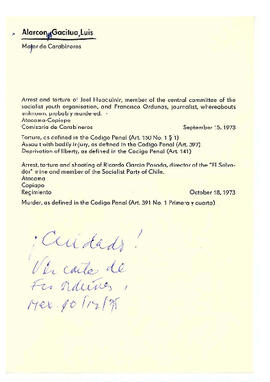 Alarcon Gacitua, Luis
Major de Carabineros
Arrest and torture of Joel Huaquinir, member of the central committee of the
socialist youth organisation, and Francisco Ordunas, journalist, whereabouts
unknown, probably murdered.
Atacama-Copiapo
Comisaria de Carabineros September 15, 1973
Torture, as defined in the Codigo Penal (Art. 150 No. 1 § 1)
Assault with bodily injury, as defined in the Codigo Penal (Art. 397)
Deprivation of liberty, as defined in the Codigo Penal (Art. 141)
Arrest, torture and shooting of Ricardo Garcia Posada, director of the "El Salva-
dor" mine and member of the Socialist Party of Chile.
Atacama
Copiapo
Regimiento October 18, 1973
Murder, as defined in the Codigo Penal (Art. 391 No. 1 Primera y cuarta)
¡Cuidado!
Ver carta de